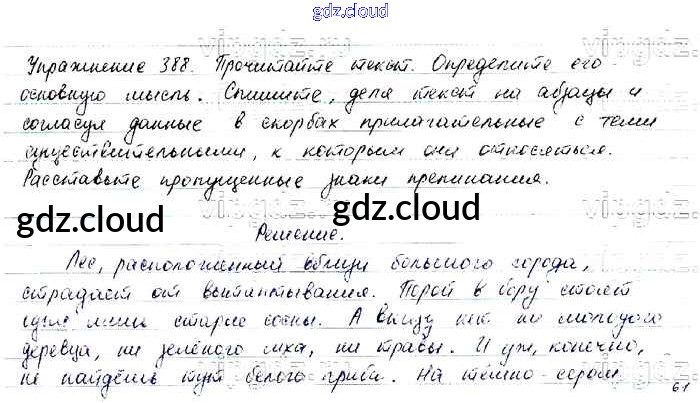 gdz.cloud
Упражнение 388. Прочитайте текст. Определите его
основную мысль. Спишите, деля текст на абзацы и
согласуя данные в скорбах прилагательные с теми
существительными, к которым они относяться.
Расставьте пропущенные знаки препинания.
gdz.cloud gdz.cloud
Решение.
Лес, расположенный вблизи большого города,
страдает от вытаптывания. Порой в бору стоят
одни лишь старые сосны. А внизу нет ни молодого
деревца, ни зелёного мха, ни травы. И уж, конечно,
не найдёшь тут белого гриба. На тёмно-сером
61